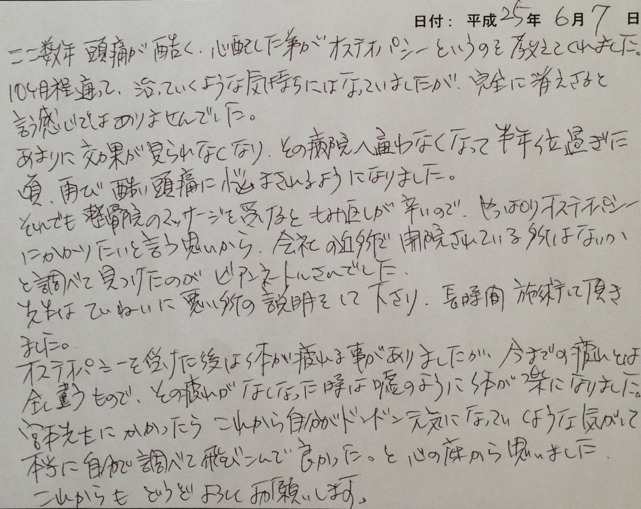 日付: 平成25年 6月 7 日
ここ数年 頭痛が酷く、心配した弟がオステオパシーというのを教えてくれました。
10ヶ月程通って、治っていくような気持ちにはなっていましたが、完全に消えさると
言う感じではありませんでした。
あまりに効果が見られなくなり、その病院へ通わなくなって半年位過ぎた
頃、再び酷い頭痛に悩まされるようになりました。
それでも整骨院のマッサージを受けるともみ返しが辛いので、やっぱりオステオパシー
にかかりたいと言う思いから、会社の近所で開院されている所はないか
と調べて見つけたのがビアンネトルさんでした。
先生はていねいに悪い所の説明をして下さり、長時間施術して頂き
ました。
オステオパシーを受けた後は体が疲れる事がありましたが、今までの疲れとは
全く違うもので、その疲れがなくなった時は嘘のように体が楽になりました。
宮本先生にかかったらこれから自分がドンドン元気になっていくような気がして
本当に自分で調べて飛びこんで良かった。と心の底から思いました。
これからもどうぞよろしくお願いします。